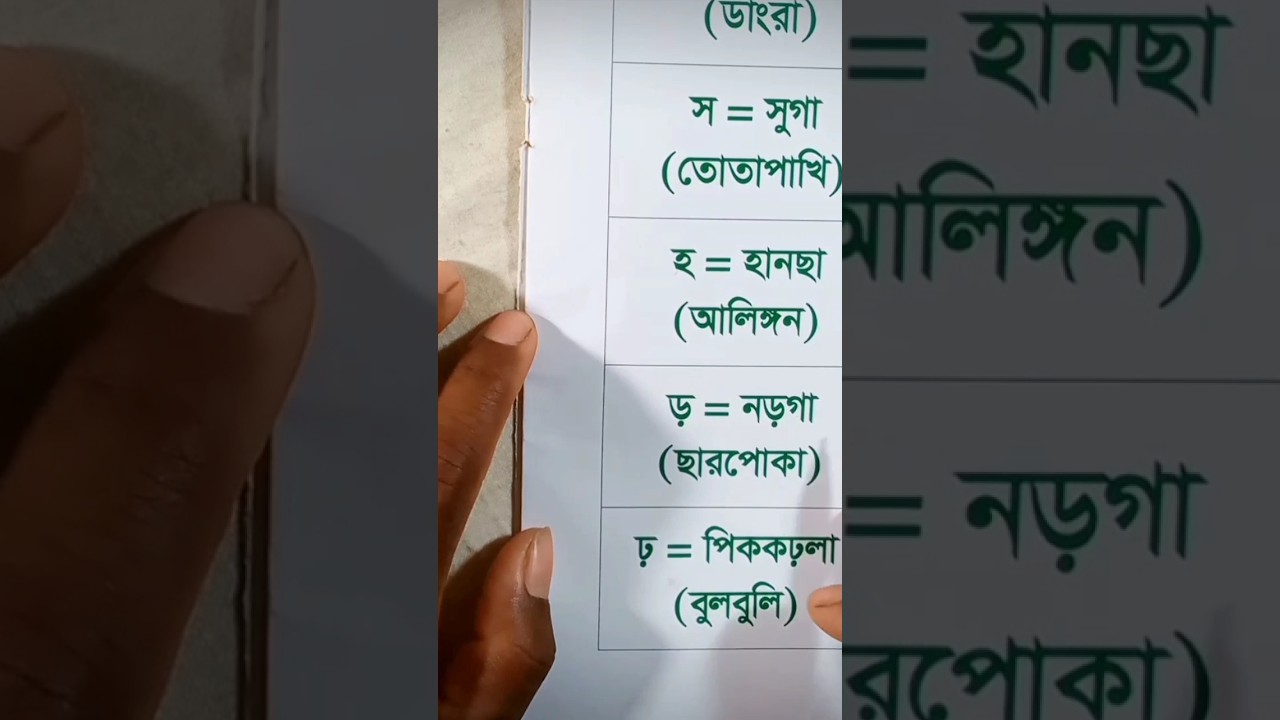 (ডাংরা)
স = সুগা
(তোতাপাখি)
হ = হানছা
(আলিঙ্গন)
ড় = নড়গা
(ছারপোকা)
ঢ় = পিককঢ়লা
(বুলবুলি)
= হানছা
আলিঙ্গন)
= নড়গা
রপোকা)